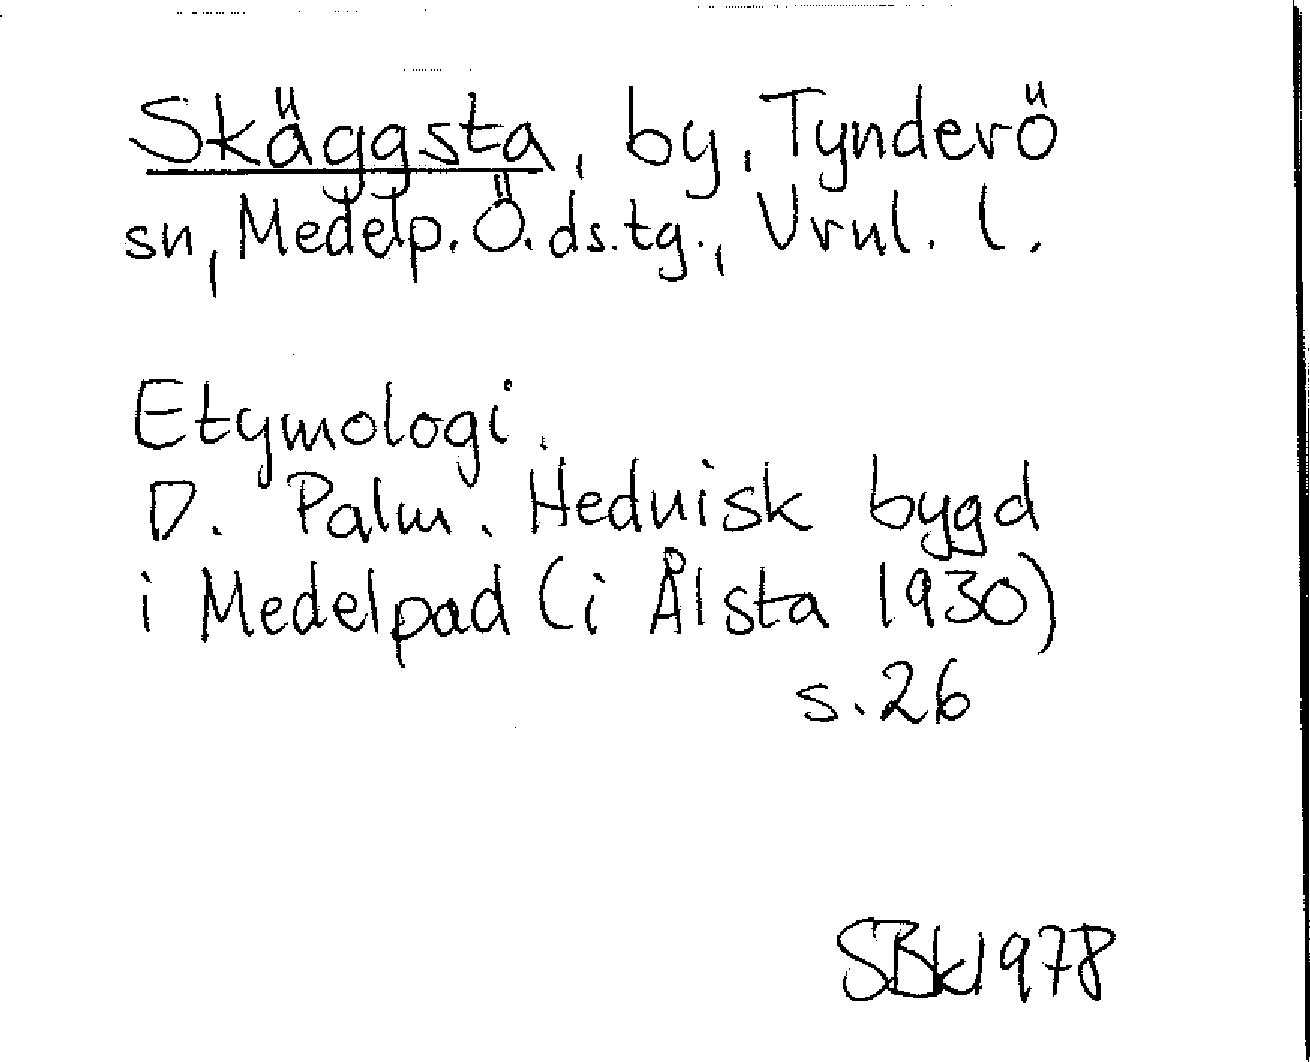 Skäggsta, by, Tynderö
sn, Medelp. Ö. ds. tg., Vrnl. l.
Etymologi.
D. Palm. Hednisk bygd
i Medelpad (i Ålsta 1930)
s. 26
SBk 1978